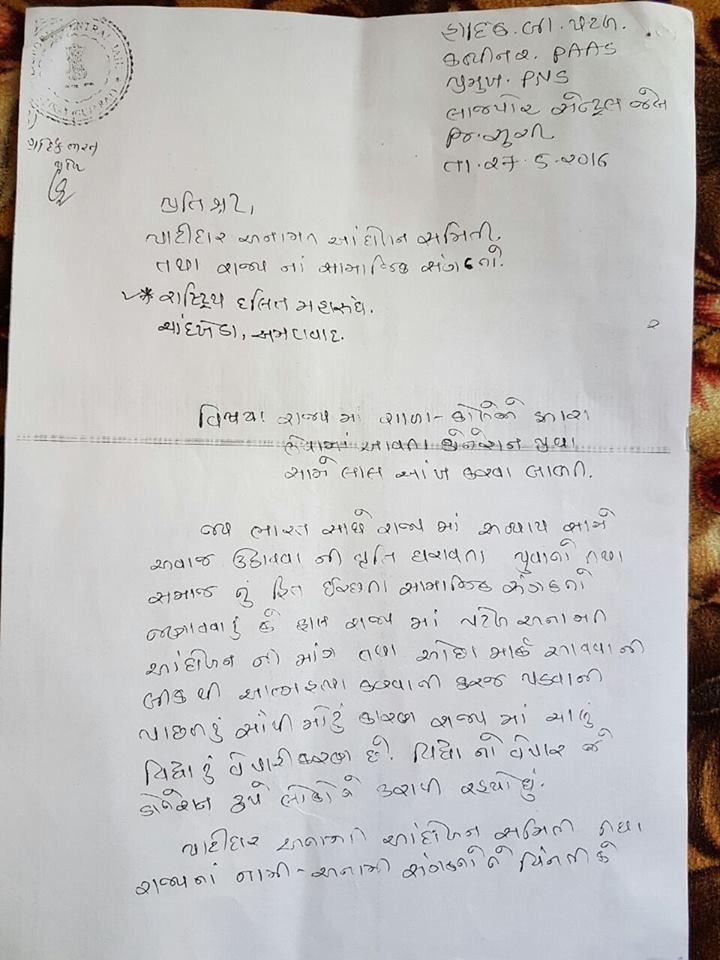 CENTRAL JAIL
હાર્દિક. બી. પટેલ.
કન્વીનર. PAAS
પ્રમુખ. PNS
લાજપોર સેન્ટ્રલ જેલ
જિ. સુરત
તા. ૨૭. ૫. ૨૦16
પ્રતિશ્રી,
પાટીદાર અનામત આંદોલન સમિતી.
તથા રાજ્ય નાં સામાજિક સંગઠનો.
* રાષ્ટ્રિય દલિત મહાસંઘ.
ચાંદખેડા, અમદાવાદ.
વિષય: રાજ્ય માં શાળા-કોલેજો દ્વારા
લેવામાં આવતા ડોનેશન પ્રથા
સામે લાલ આંખ કરવા બાબત.
જય ભારત સાથે રાજ્ય માં અન્યાય સામે
અવાજ ઉઠાવવા ની વૃતિ ધરાવતા યુવાનો તથા
સમાજ નું હિત ઈચ્છતા સામાજિક સંગઠનો
જણાવવાનું કે હાલ રાજ્ય માં પટેલ અનામત
આંદોલન ની માંગ તથા ઓછા માર્ક આવવાની
બીક થી આત્મહત્યા કરવાની ફરજ પડવાની
પાછળનું સૌથી મોટું કારણ રાજ્ય માં ચાલું
વિદ્યા નું વેપારીકરણ છે. વિદ્યા નો વેપાર જે
ડોનેશન રૂપે લોકોને
પાટીદાર અનામત આંદોલન સમિતી તથા
રાજ્યનાં નામી-અનામી સંગઠનો ને વિનંતી કે